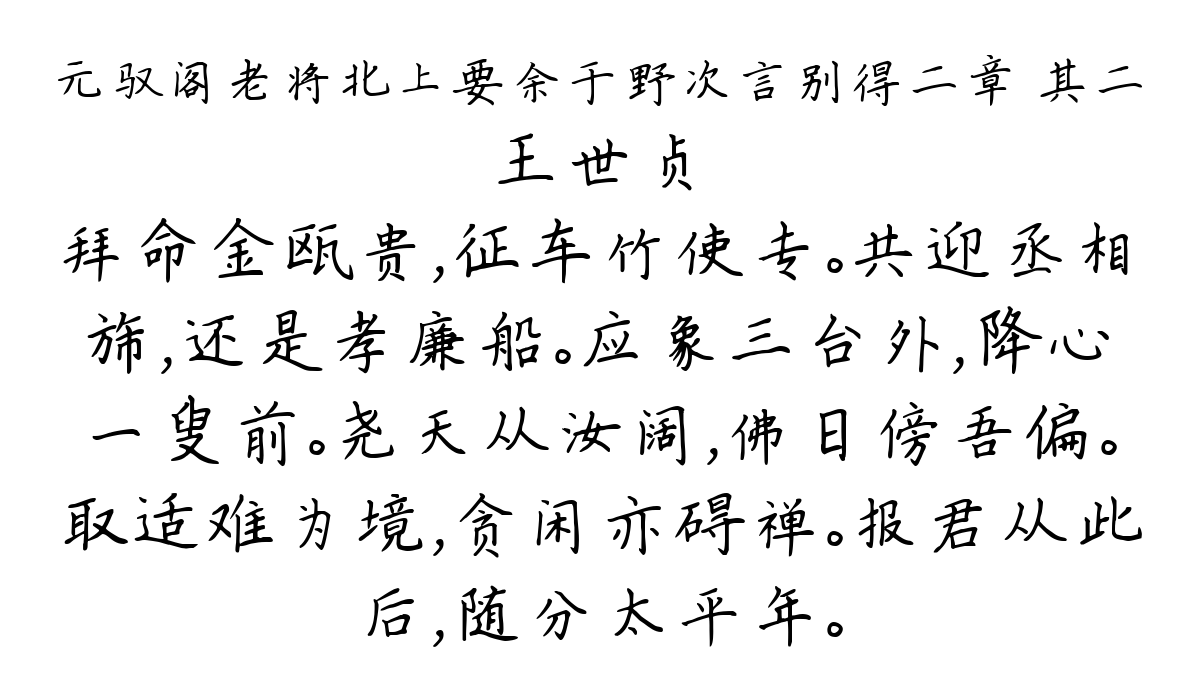 元驭阁老将北上要余于野次言别得二章 其二
王世贞
拜命金瓯贵,征车竹使专。共迎丞相
旆,还是孝廉船。应象三台外,降心
一叟前。尧天从汝阔,佛日傍吾偏。
取适难为境,贪闲亦碍禅。报君从此
后,随分太平年。